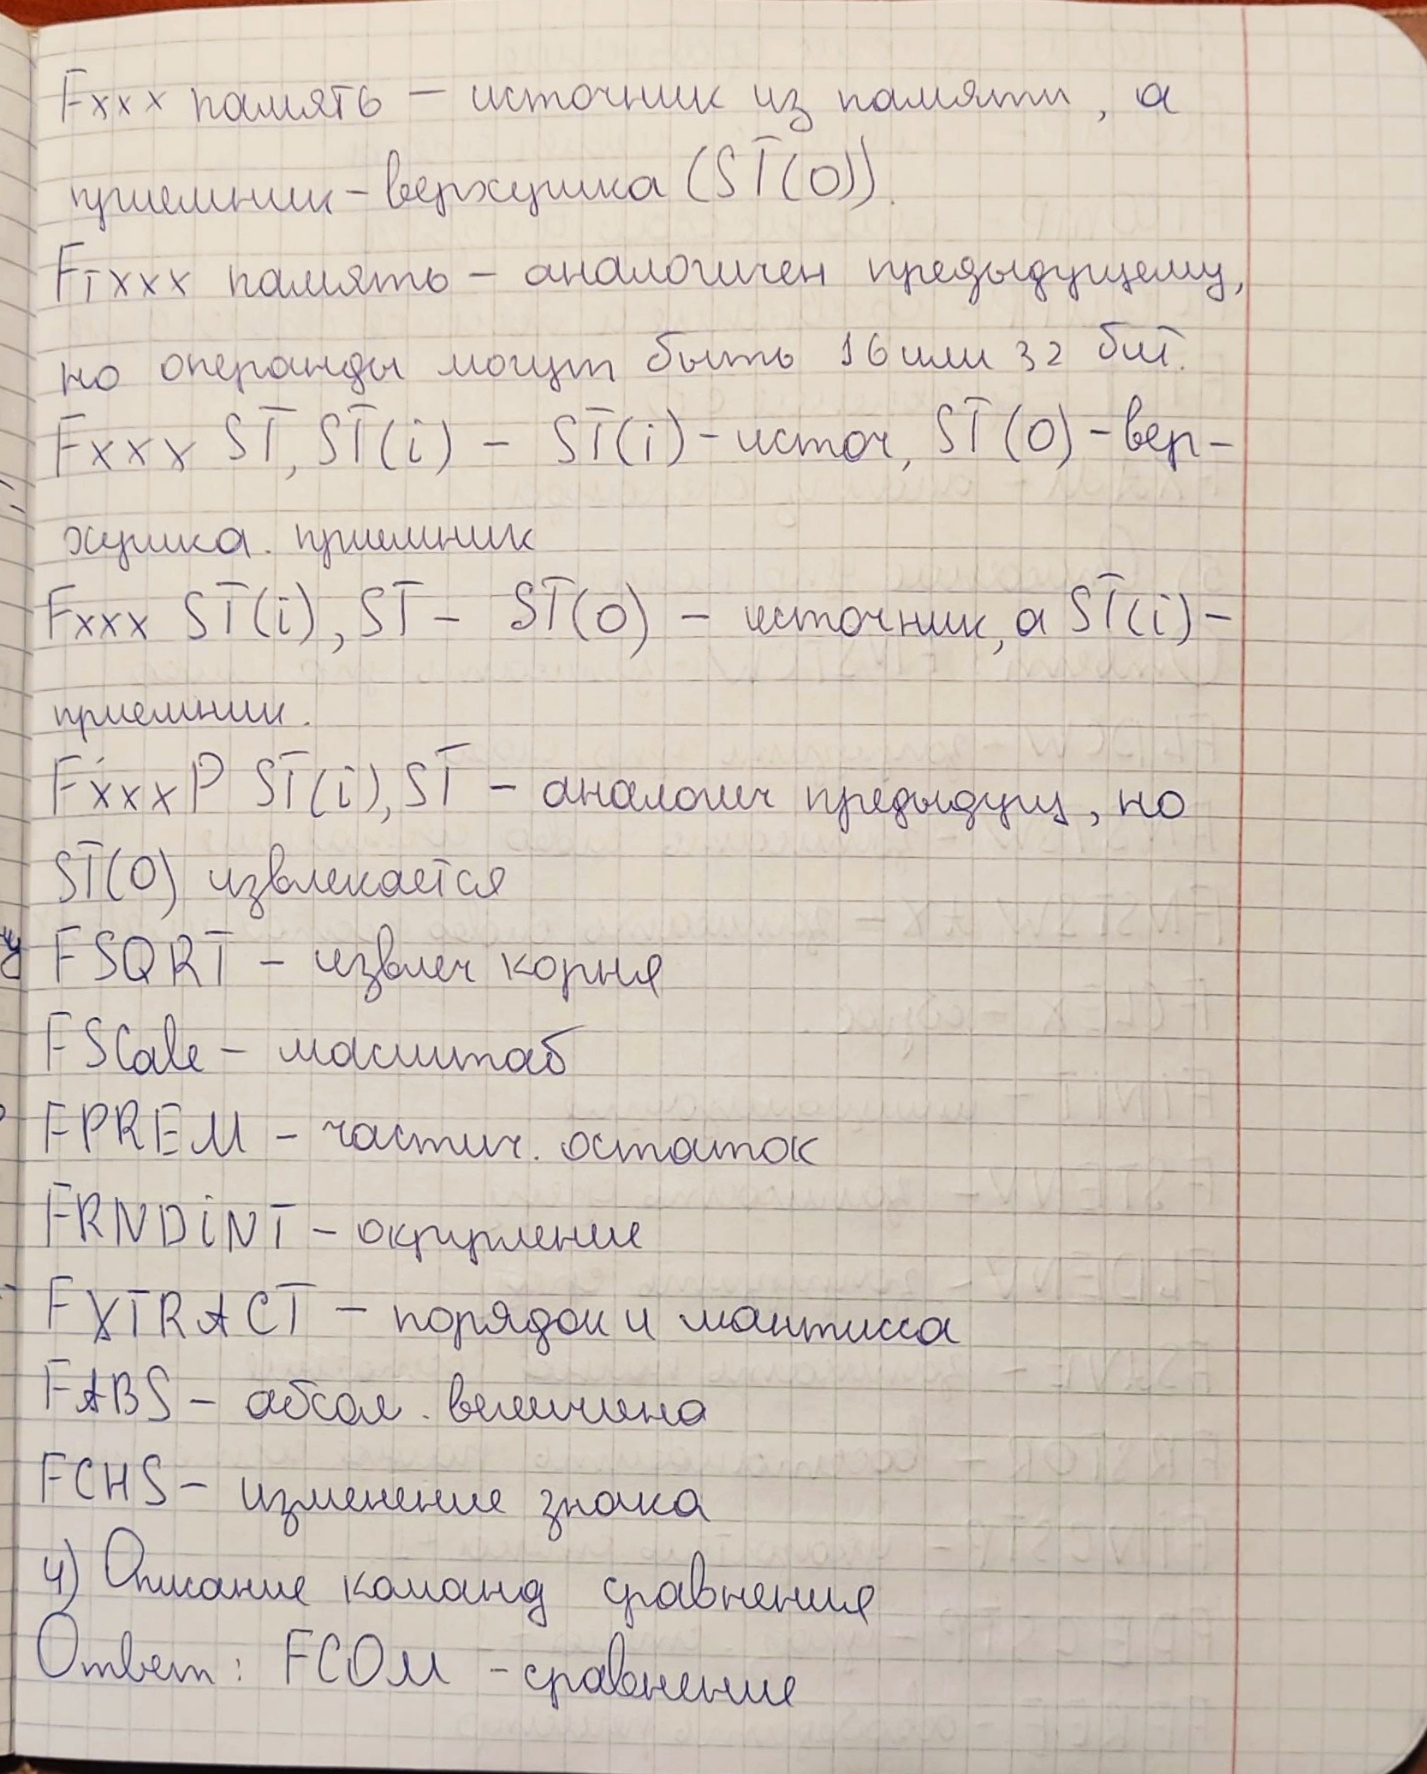 Fxxx память – источник из памяти, а
приемник – верхушка (ST(0)).
FIxxx память – аналогичен предыдущему,
но операнды могут быть 16 или 32 бит.
Fxxx ST, ST(i) – ST(i) – источ, ST(0) – вер-
хушка. приемник
Fxxx ST(i), ST – ST(0) – источник, а ST(i) –
приемник.
FxxxP ST(i), ST – аналогич предыдущ, но
ST(0) извлекается
FSQRT – извлеч корня
FSCale – масштаб
FPREM – частич. остаток
FRNDiNT – округление
FXTRACT – порядок и мантисса
FABS – абсол. величина
FCHS – изменение знака
4) Описание команд сравнения
Ответ: FCOM – сравнение